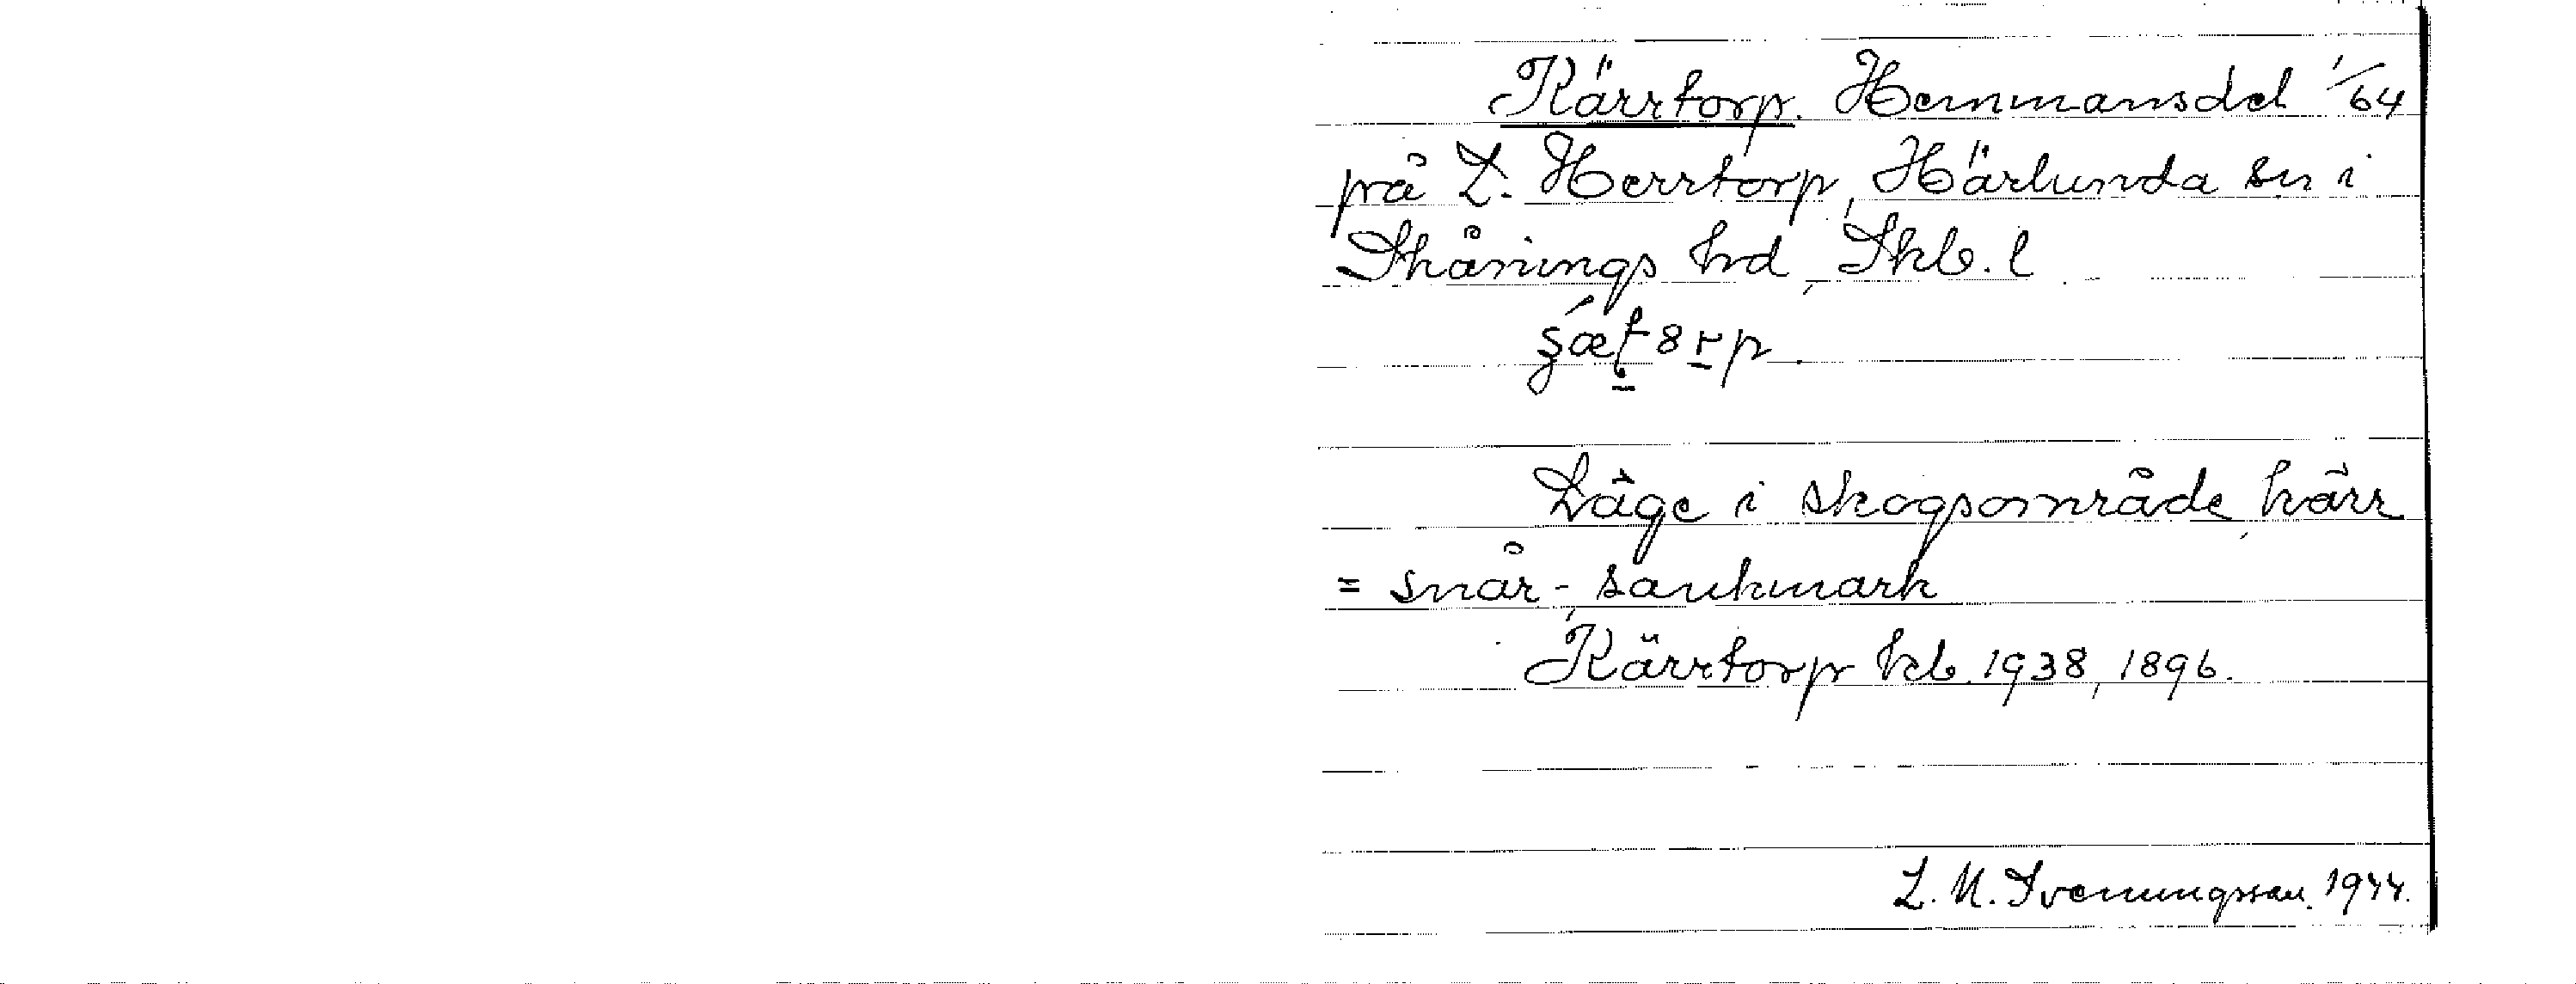 Kärrtorp. Hemmansdel 1/64
på L. Herrtorp, Härlunda sn i
Skånings hrd, Skb. l
Läge i skogsområde, kärr
= snår-, sankmark
Kärrtorp kb. 1938, 1896.
L. N. Svenungsson. 1944.